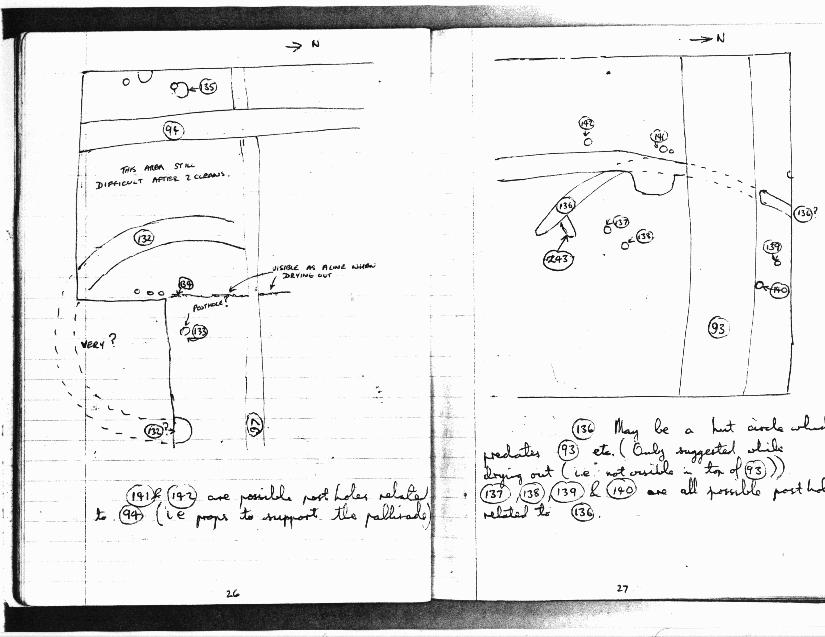 → N
135
94
THIS AREA STILL
DIFFICULT AFTER 2 CLEANS.
132
VISIBLE AS A LINE WHEN
DRYING OUT
134
POSTHOLE?
133
VERY ?
132?
97
141 & 142 are possible post holes relate
to 94 (i.e props to support the pallisade)
26
→ N
142
141
136
137
138
243
136?
139
140
93
136 May be a hut circle which
predates 93 etc. (Only suggested while
drying out (i.e. not visible in top of 93))
137, 138, 139 & 140 are all possible posthol
related to 136.
27